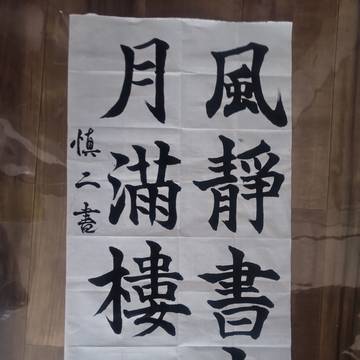 風靜書
月滿樓
慎二書